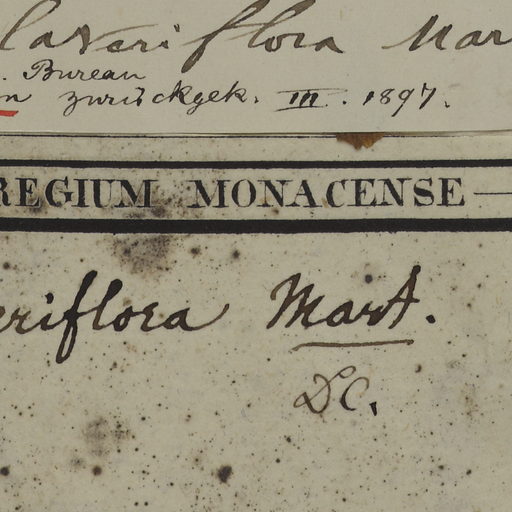 laveriflora Mar
. Bureau
n zurückgek. III. 1897.
REGIUM MONACENSE
eriflora Mart.
DC.